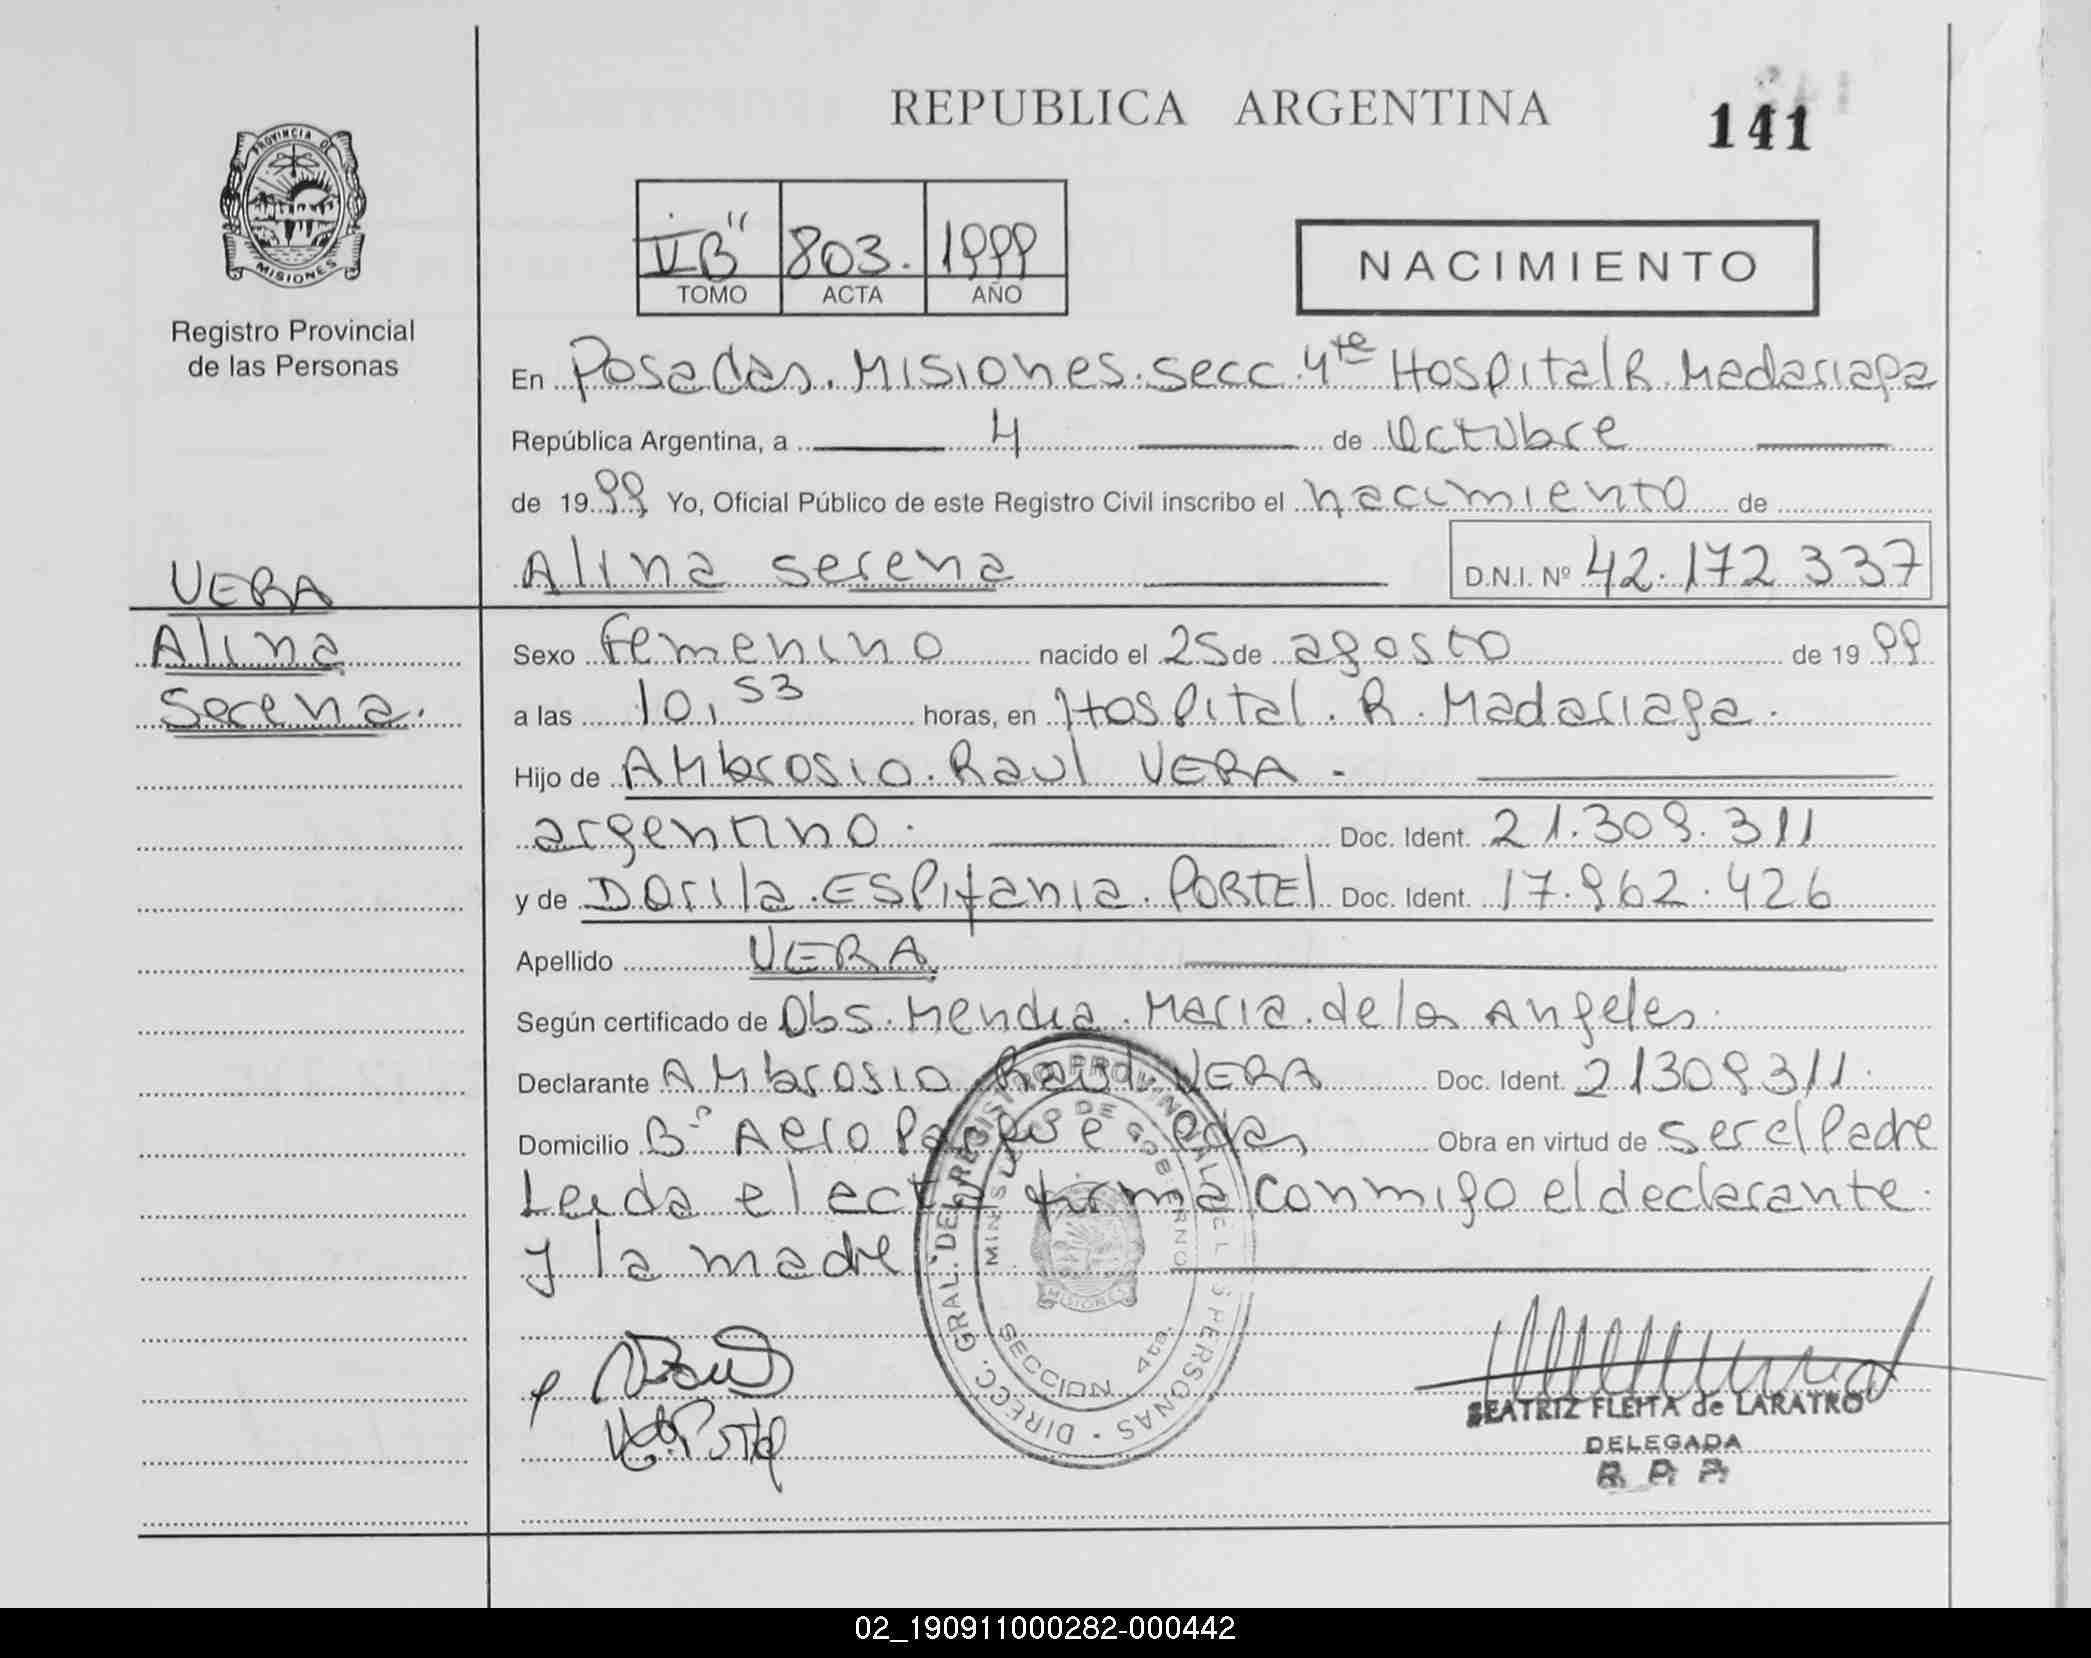 REPUBLICA ARGENTINA
141
PROVINCIA DE
MISIONES
Registro Provincial
de las Personas
II "B" 803. 1999
TOMO ACTA AÑO
NACIMIENTO
En Posadas. Misiones. secc. 4te Hospital R. Madariaga
República Argentina, a 4 de Octubre
de 1999 Yo, Oficial Público de este Registro Civil inscribo el nacimiento de
Alina Serena D.N.I. Nº 42.172 337
VERA
Alina
Serena.
Sexo Femenino nacido el 25 de agosto de 1999
a las 10,53 horas, en Hospital. R. Madariaga.
Hijo de AMbrosio. Raul VERA -
argentino. Doc. Ident. 21.309.311
y de Dorila. ESPifania. PORTEl Doc. Ident. 17.962.426
Apellido VERA
Según certificado de Obs. Mendia. Maria. de los Angeles.
Declarante AMbrosio Raul VERA Doc. Ident. 21309311.
Domicilio Bº Aero Parque Pdas Obra en virtud de ser el Padre
Leida el acta firma conmigo el declarante.
y la madre
DIRECC. GRAL. DEL REGISTRO PROVINCIAL DE LAS PERSONAS
MINISTERIO DE GOBIERNO
MISIONES
SECCION 4ta.
BEATRIZ FLEITA de LARATRO
DELEGADA
R. P. P.
02_190911000282-000442